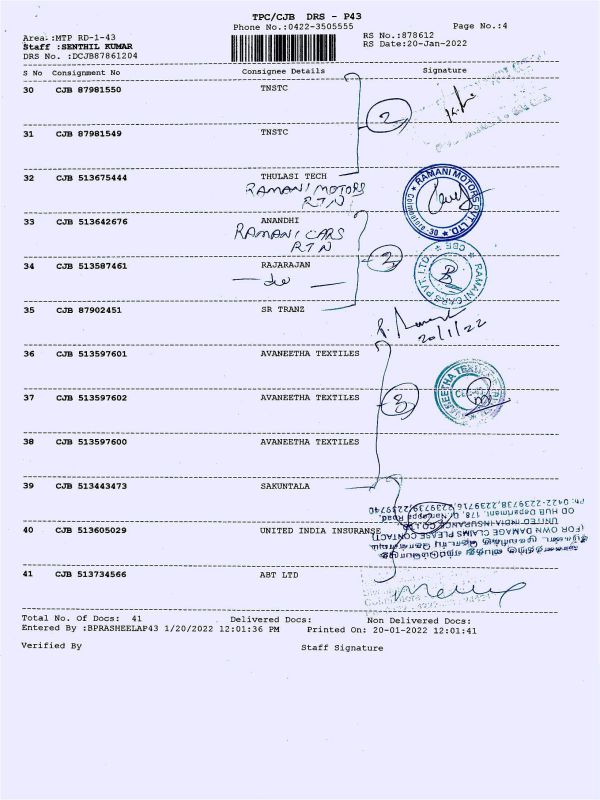 TPC/CJB DRS - P43
Phone No.:0422-3505555
Page No.:4
Area :MTP RD-1-43
RS No.:878612
Staff :SENTHIL KUMAR
RS Date:20-Jan-2022
DRS No. :DCJB87861204
S No Consignment No Consignee Details Signature
30 CJB 87981550 TNSTC
2
31 CJB 87981549 TNSTC
32 CJB 513675444 THULASI TECH
RAMANI MOTORS
RTN
RAMANI MOTORS PVT LTD
33 CJB 513642676 ANANDHI
RAMANI CARS
RTN
34 CJB 513587461 RAJARAJAN
RAMANI CARS PVT. LTD. CBE
35 CJB 87902451 SR TRANZ
20/1/22
36 CJB 513597601 AVANEETHA TEXTILES
37 CJB 513597602 AVANEETHA TEXTILES
3
38 CJB 513597600 AVANEETHA TEXTILES
39 CJB 513443473 SAKUNTALA
40 CJB 513605029 UNITED INDIA INSURANSE
(FOR OWN DAMAGE CLAIMS PLEASE CONTACT)
UNITED INDIA INSURANCE CO LTD
OD HUB Department, 178,
Ph: 0422-2239738,2239716,2239739/2239740
41 CJB 513734566 ABT LTD
Total No. Of Docs: 41 Delivered Docs: Non Delivered Docs:
Entered By :BPRASHEELAP43 1/20/2022 12:01:36 PM Printed On: 20-01-2022 12:01:41
Verified By Staff Signature